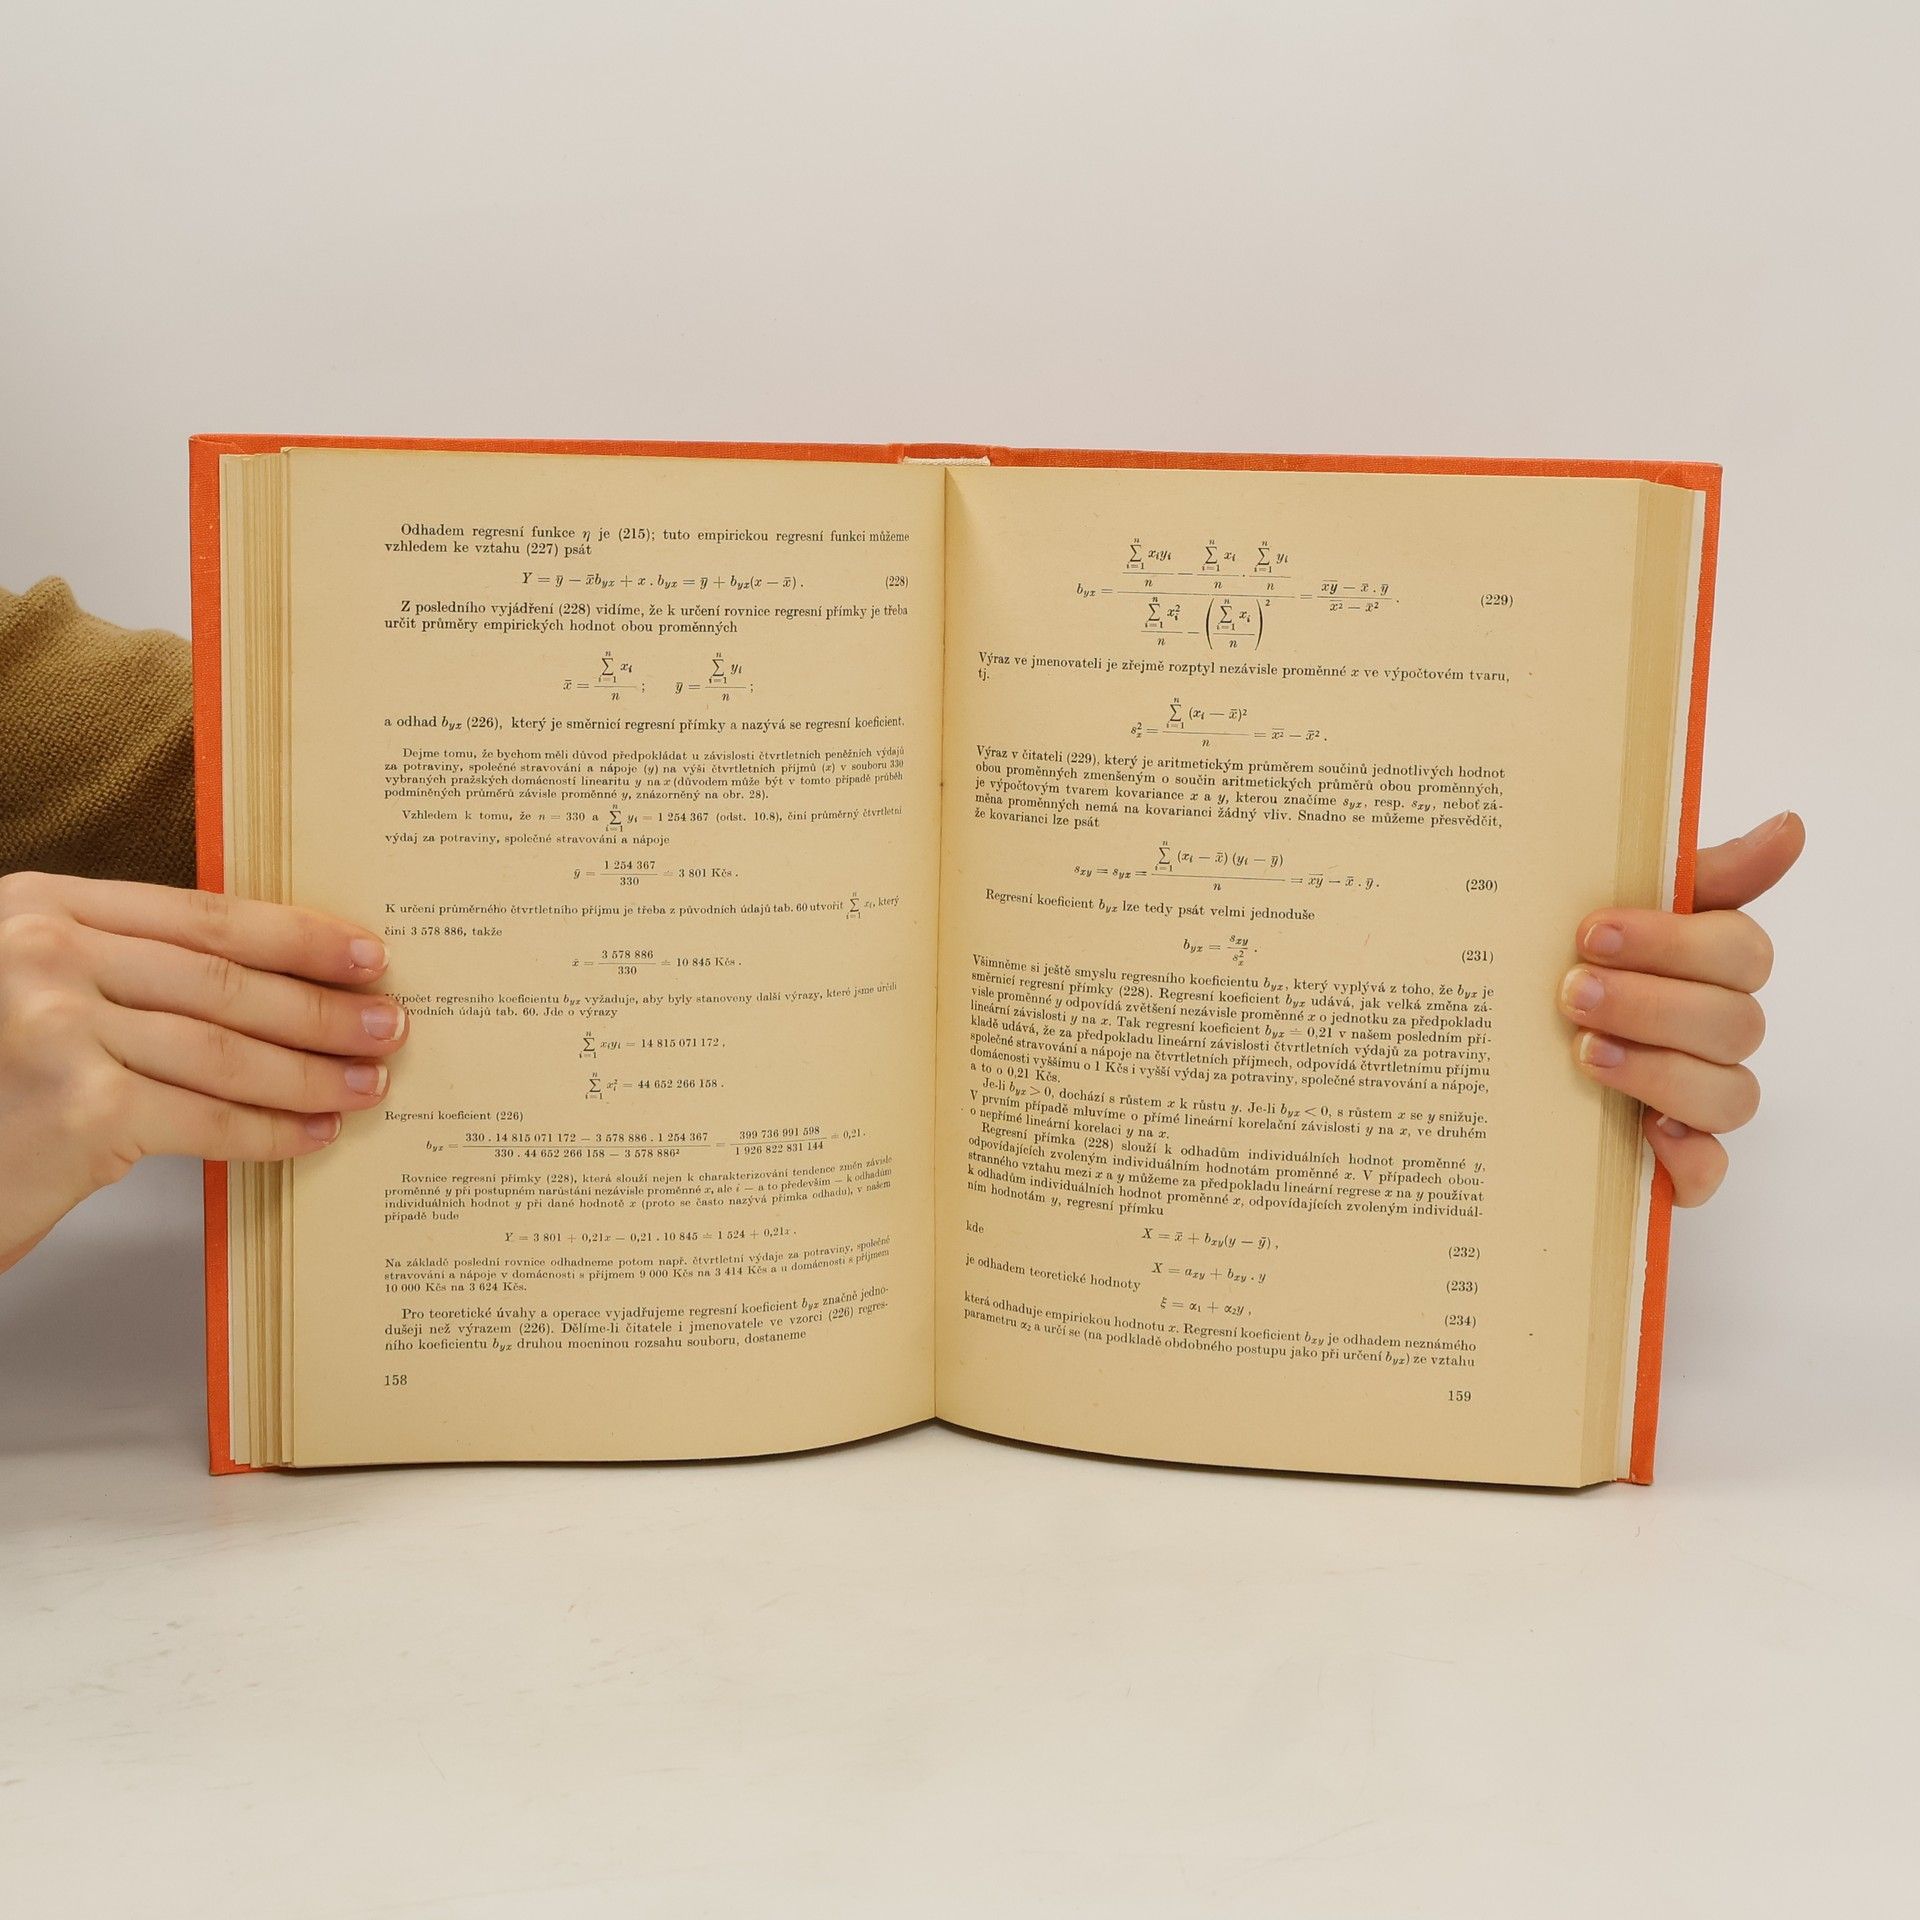 Odhadem regresní funkce η je (215); tuto empirickou regresní funkci můžeme
vzhledem ke vztahu (227) psát
Y = ȳ − x̄b_yx + x . b_yx = ȳ + b_yx(x − x̄) . (228)
Z posledního vyjádření (228) vidíme, že k určení rovnice regresní přímky je třeba
určit průměry empirických hodnot obou proměnných
x̄ = \frac{\sum_{i=1}^{n} x_i}{n} ; ȳ = \frac{\sum_{i=1}^{n} y_i}{n} ;
a odhad b_yx (226), který je směrnicí regresní přímky a nazývá se regresní koeficient.
Dejme tomu, že bychom měli důvod předpokládat u závislosti čtvrtletních peněžních výdajů
za potraviny, společné stravování a nápoje (y) na výši čtvrtletních příjmů (x) v souboru 330
vybraných pražských domácností linearitu y na x (důvodem může být v tomto případě průběh
podmíněných průměrů závisle proměnné y, znázorněný na obr. 28).
Vzhledem k tomu, že n = 330 a \sum_{i=1}^{n} y_i = 1 254 367 (odst. 10.8), činí průměrný čtvrtletní
výdaj za potraviny, společné stravování a nápoje
ȳ = \frac{1 254 367}{330} ≐ 3 801 Kčs .
K určení průměrného čtvrtletního příjmu je třeba z původních údajů tab. 60 utvořit \sum_{i=1}^{n} x_i, který
činí 3 578 886, takže
x̄ = \frac{3 578 886}{330} ≐ 10 845 Kčs .
Výpočet regresního koeficientu b_yx vyžaduje, aby byly stanoveny další výrazy, které jsme určili
údajů tab. 60. Jde o výrazy
\sum_{i=1}^{n} x_i y_i = 14 815 071 172 ,
\sum_{i=1}^{n} x_i^2 = 44 652 266 158 .
Regresní koeficient (226)
b_yx = \frac{330 . 14 815 071 172 − 3 578 886 . 1 254 367}{330 . 44 652 266 158 − 3 578 886²} = \frac{399 736 991 598}{1 926 822 831 144} ≐ 0,21 .
Rovnice regresní přímky (228), která slouží nejen k charakterizování tendence změn závisle
proměnné y při postupném narůstání nezávisle proměnné x, ale i — a to především — k odhadům
individuálních hodnot y při dané hodnotě x (proto se často nazývá přímka odhadu), v našem
případě bude
Y = 3 801 + 0,21x − 0,21 . 10 845 ≐ 1 524 + 0,21x .
Na základě poslední rovnice odhadneme potom např. čtvrtletní výdaje za potraviny, společné
stravování a nápoje v domácnosti s příjmem 9 000 Kčs na 3 414 Kčs a u domácnosti s příjmem
10 000 Kčs na 3 624 Kčs.
Pro teoretické úvahy a operace vyjadřujeme regresní koeficient b_yx značně jedno-
dušeji než výrazem (226). Dělíme-li čitatele i jmenovatele ve vzorci (226) regres-
ního koeficientu b_yx druhou mocninou rozsahu souboru, dostaneme
158
b_yx = \frac{\frac{\sum_{i=1}^{n} x_i y_i}{n} − \frac{\sum_{i=1}^{n} x_i}{n} . \frac{\sum_{i=1}^{n} y_i}{n}}{\frac{\sum_{i=1}^{n} x_i^2}{n} − \left(\frac{\sum_{i=1}^{n} x_i}{n}\right)^2} = \frac{\overline{xy} − x̄ . ȳ}{\overline{x^2} − x̄^2} . (229)
Výraz ve jmenovateli je zřejmě rozptyl nezávisle proměnné x ve výpočtovém tvaru,
tj.
s_x^2 = \frac{\sum_{i=1}^{n} (x_i − x̄)^2}{n} = \overline{x^2} − x̄^2 .
Výraz v čitateli (229), který je aritmetickým průměrem součinů jednotlivých hodnot
obou proměnných zmenšeným o součin aritmetických průměrů obou proměnných,
je výpočtovým tvarem kovariance x a y, kterou značíme s_yx, resp. s_xy, neboť zá-
měna proměnných nemá na kovarianci žádný vliv. Snadno se můžeme přesvědčit,
že kovarianci lze psát
s_xy = s_yx = \frac{\sum_{i=1}^{n} (x_i − x̄) (y_i − ȳ)}{n} = \overline{xy} − x̄ . ȳ . (230)
Regresní koeficient b_yx lze tedy psát velmi jednoduše
b_yx = \frac{s_xy}{s_x^2} . (231)
Všimněme si ještě smyslu regresního koeficientu b_yx, který vyplývá z toho, že b_yx je
směrnicí regresní přímky (228). Regresní koeficient b_yx udává, jak velká změna zá-
visle proměnné y odpovídá zvětšení nezávisle proměnné x o jednotku za předpokladu
lineární závislosti y na x. Tak regresní koeficient b_yx ≐ 0,21 v našem posledním pří-
kladě udává, že za předpokladu lineární závislosti čtvrtletních výdajů za potraviny,
společné stravování a nápoje na čtvrtletních příjmech, odpovídá čtvrtletnímu příjmu
domácnosti vyššímu o 1 Kčs i vyšší výdaj za potraviny, společné stravování a nápoje,
a to o 0,21 Kčs.
Je-li b_yx > 0, dochází s růstem x k růstu y. Je-li b_yx < 0, s růstem x se y snižuje.
V prvním případě mluvíme o přímé lineární korelační závislosti y na x, ve druhém
o nepřímé lineární korelaci y na x.
Regresní přímka (228) slouží k odhadům individuálních hodnot proměnné y,
odpovídajících zvoleným individuálním hodnotám proměnné x. V případech obou-
stranného vztahu mezi x a y můžeme za předpokladu lineární regrese x na y používat
k odhadům individuálních hodnot proměnné x, odpovídajících zvoleným individuál-
ním hodnotám y, regresní přímku
X = x̄ + b_xy(y − ȳ) , (232)
kde
X = a_xy + b_xy . y (233)
je odhadem teoretické hodnoty
ξ = α_1 + α_2 y , (234)
která odhaduje empirickou hodnotu x. Regresní koeficient b_xy je odhadem neznámého
parametru α_2 a určí se (na podkladě obdobného postupu jako při určení b_yx) ze vztahu
159